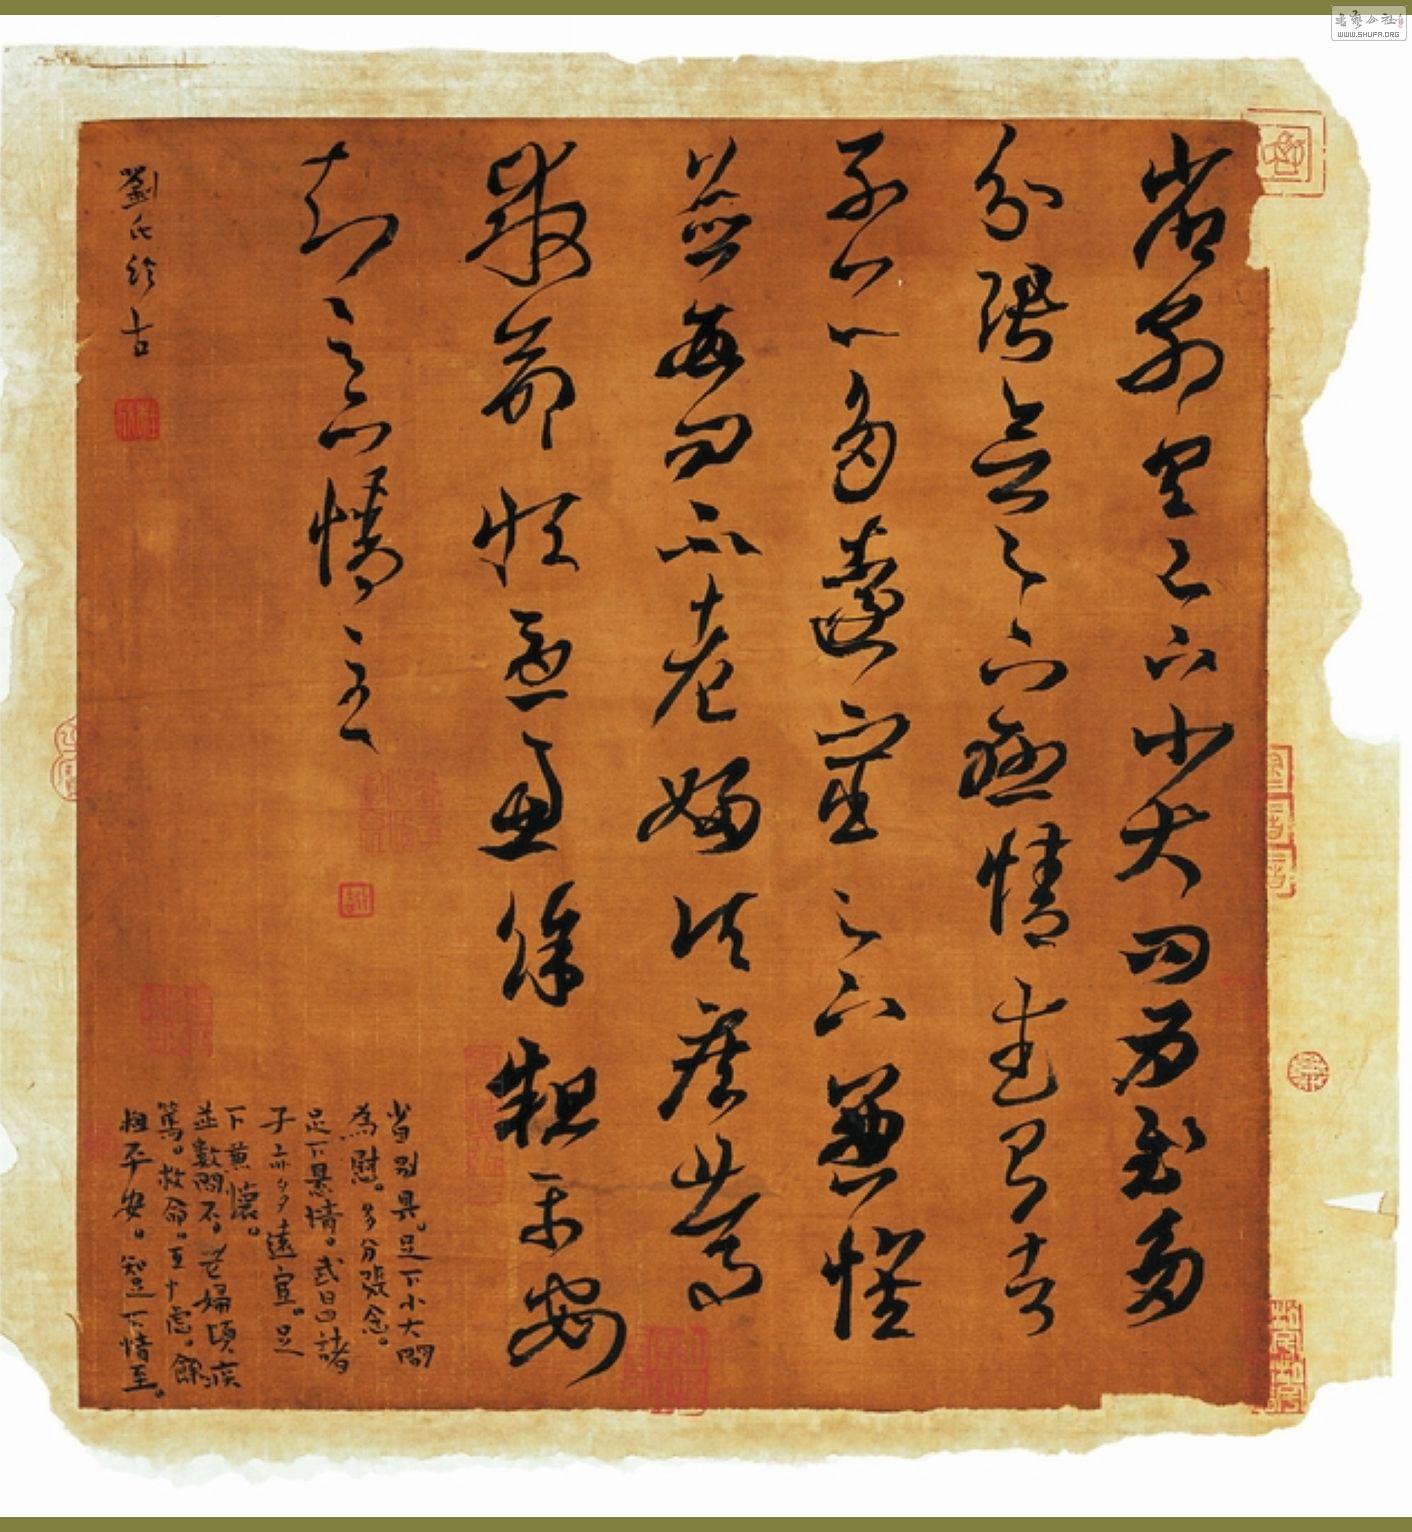 省別具足下小大問為慰多
分張念足下懸情武昌諸
子亦多遠宦足下兼懷
並數問不老婦頃疾篤
救命恒憂慮餘粗平安
知足下情至
省別具。足下小大問
為慰。多分張念。
足下懸情。武昌諸
子亦多遠宦。足
下兼懷。
並數問不。老婦頃疾
篤。救命。慮。餘
粗平安。知足下情至。
劉氏 古
WWW.SHUFA.ORG